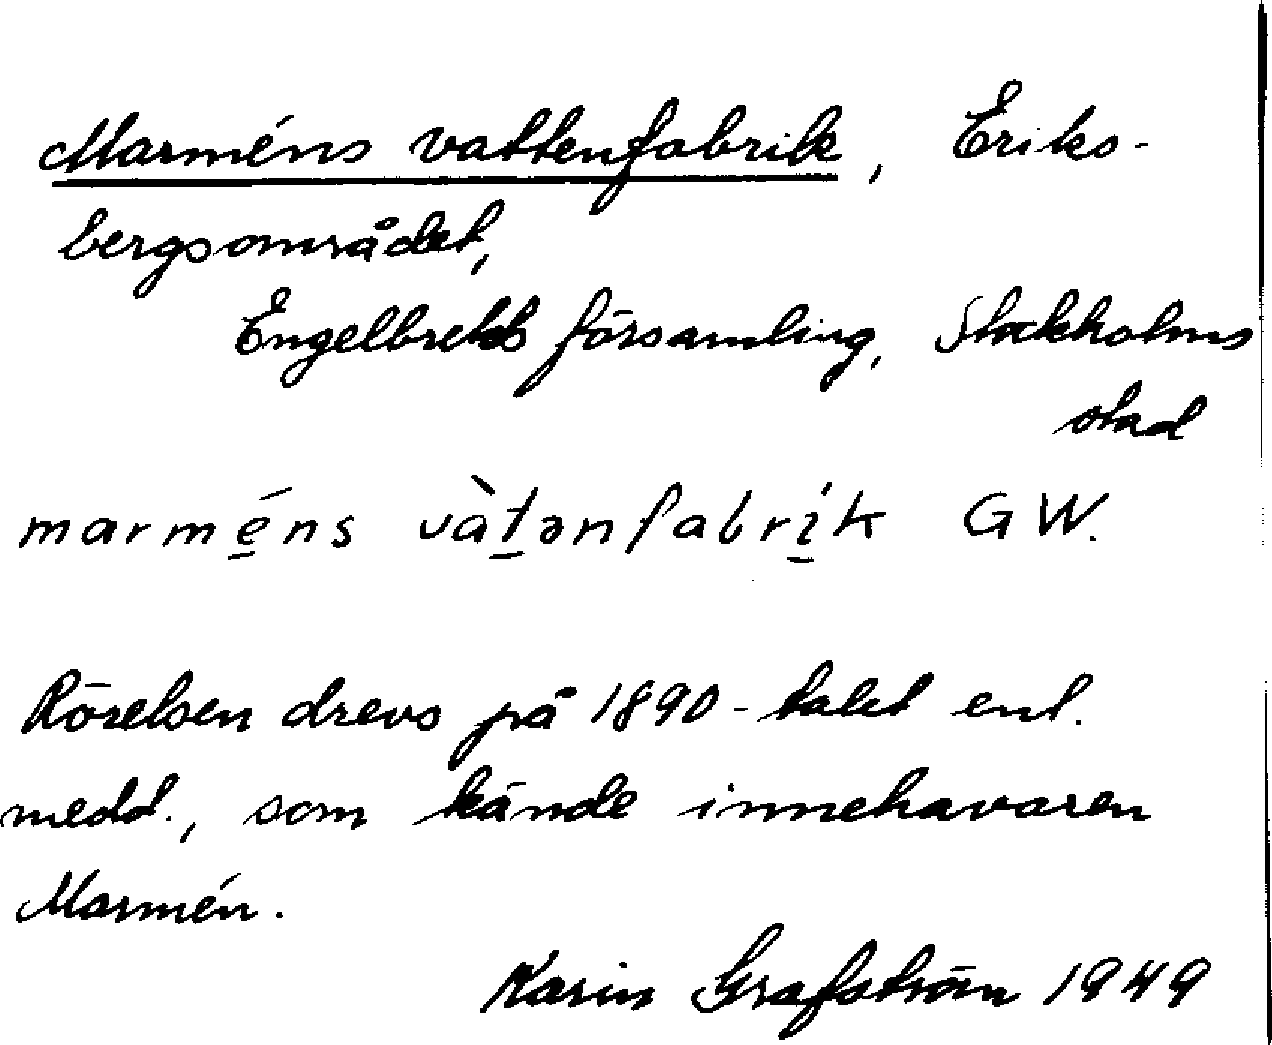 Marméns vattenfabrik, Eriks-
bergsområdet,
Engelbrekts församling, Stockholms
stad
marméns vàtənfabrík GW.
Rörelsen drevs på 1890-talet enl.
medd., som kände innehavaren
Marmén.
Karin Grafström 1949